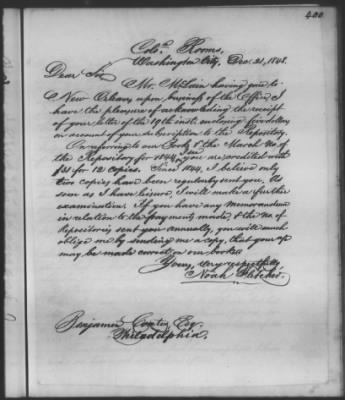 400
Colo. Rooms,
Washington City, Dec. 21, 1848.
Dear Sir
Mr. McLain having gone to
New Orleans upon business of the Office, I
have the pleasure of acknowledging the receipt
of your letter of the 19th inst. enclosing five dollars
on account of your subscription to the Repository.
On referring to our books & the March No. of
the Repository for 1844, you are credited with
$31 for 12 copies. Since 1844, I believe only
two copies have been regularly sent you. As
soon as I have leisure, I will make a further
examination. If you have any memorandum
in relation to the payments made, & the no. of
Repositories sent you annually, you will much
oblige me by sending me a copy, that your
may be made correct on our books.
Yours, very respectfully,
Noah Fletcher.
Benjamin Coates, Esq.
Philadelphia.